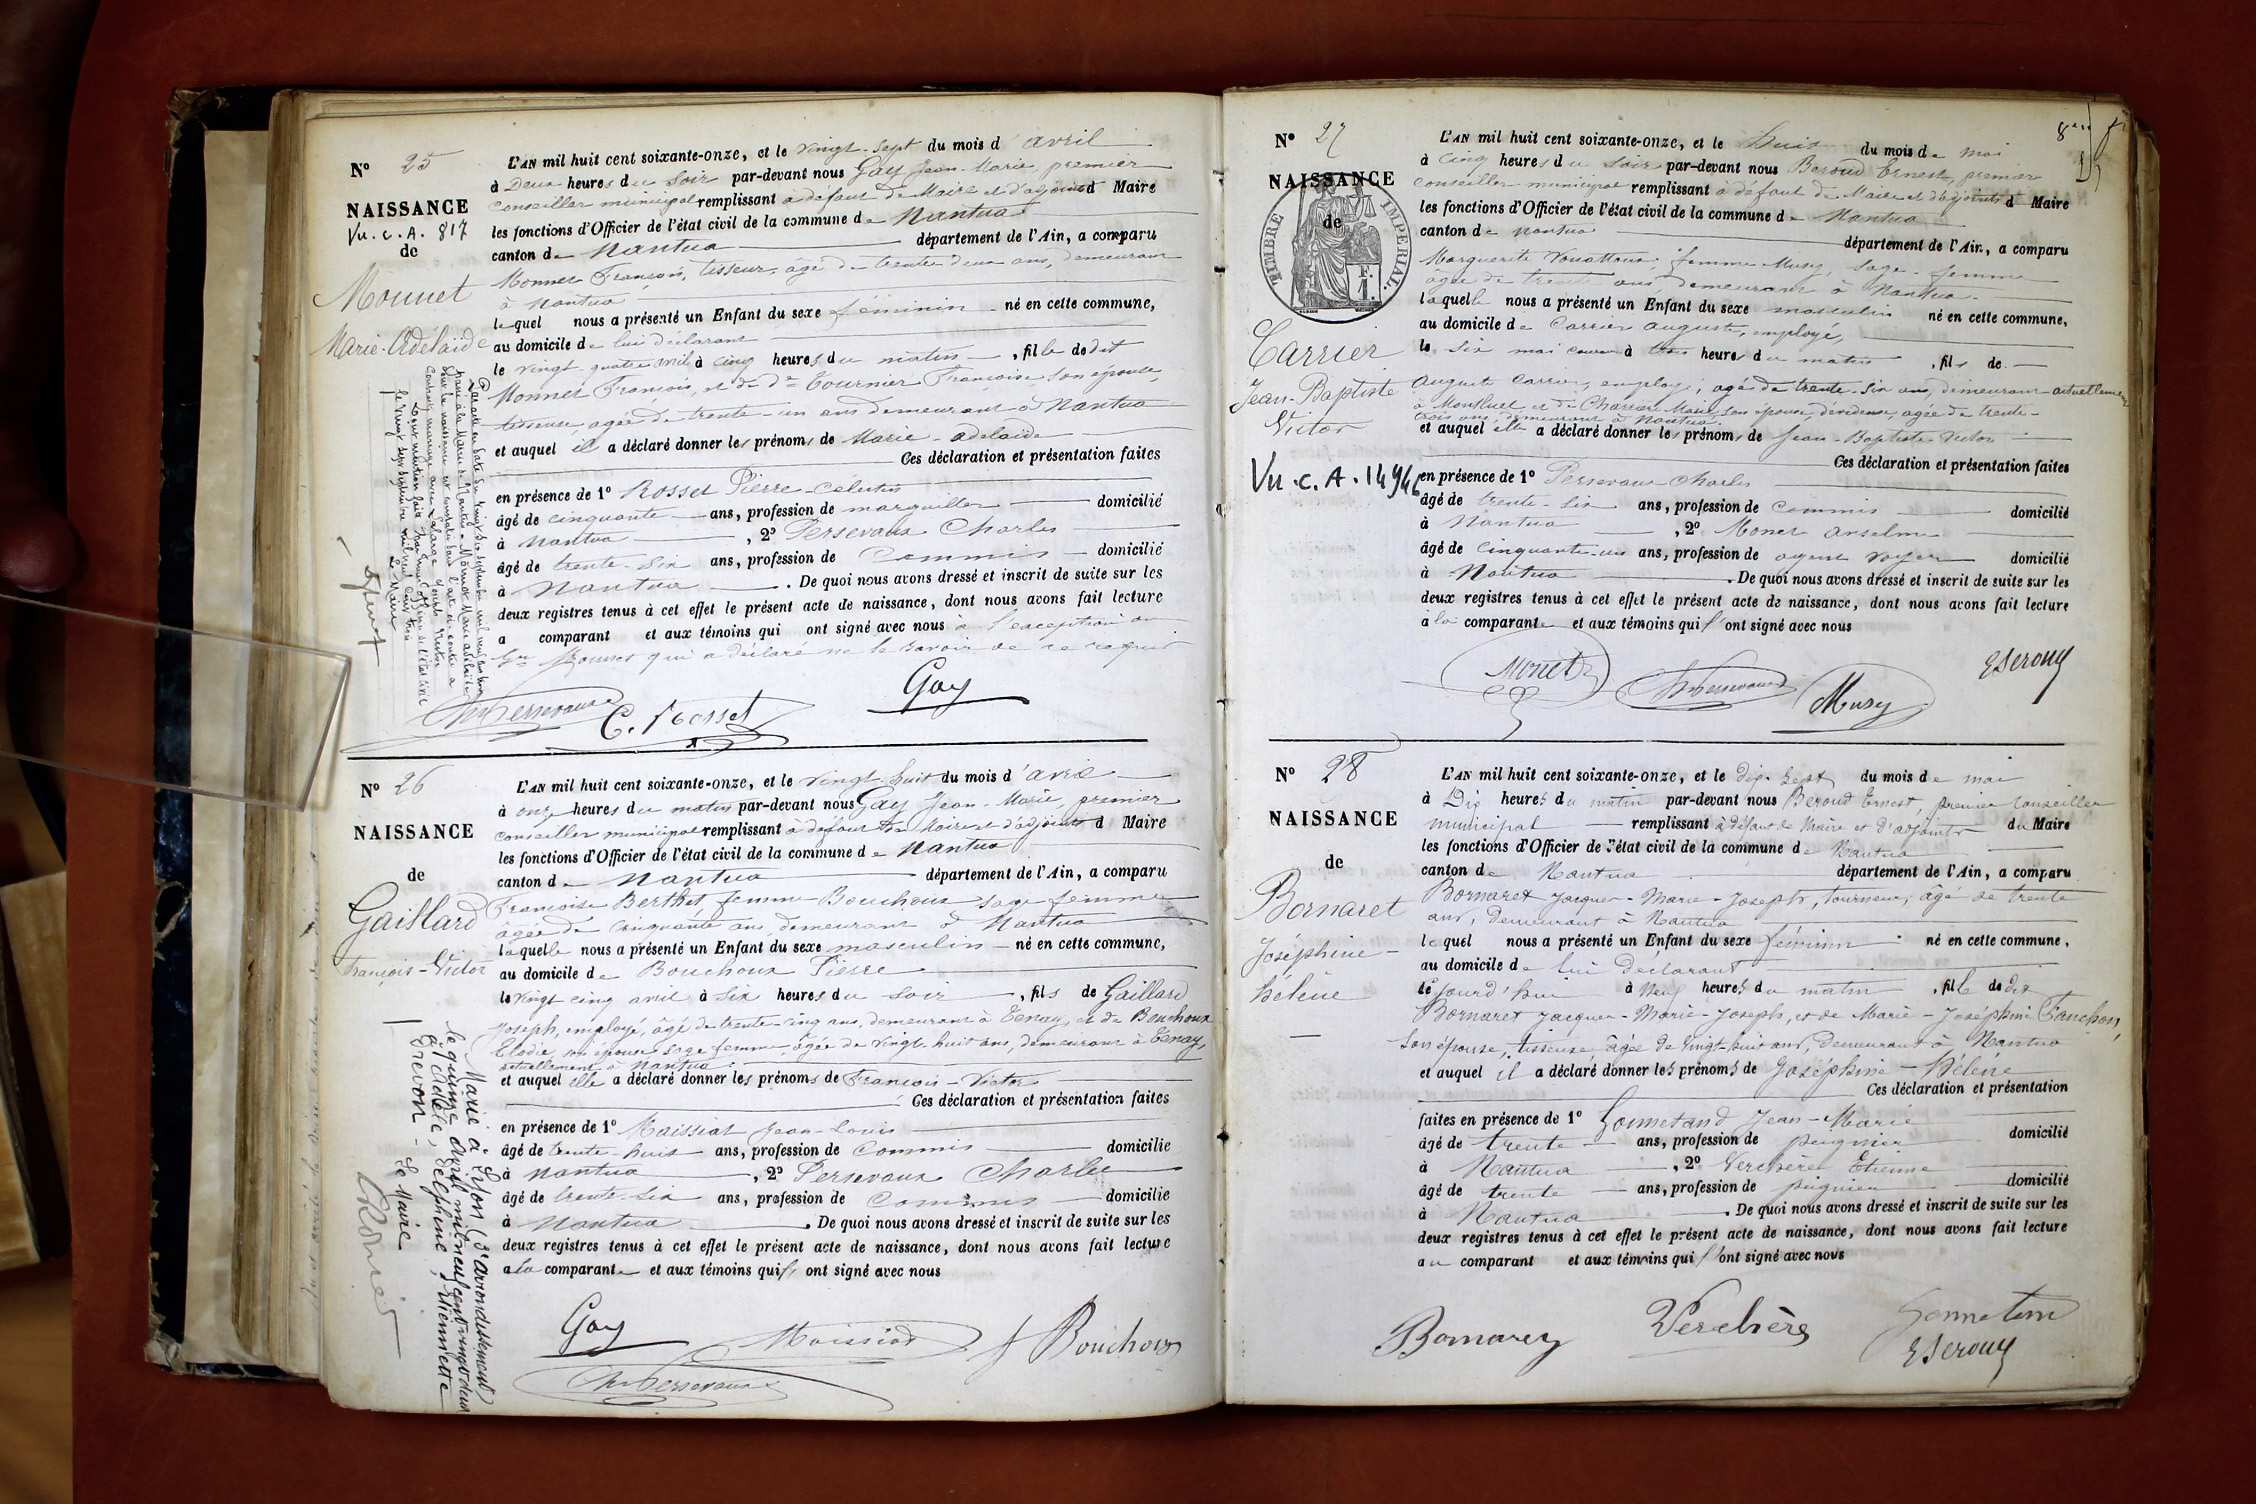 N° 25
NAISSANCE
Vu. c. A. 817
de
Monnet
Marie-Adelaïde
L'AN mil huit cent soixante-onze, et le vingt-sept du mois d'avril
à Deux heures du soir par-devant nous Gay Jean-Marie premier
conseiller municipal remplissant à défaut de Maire et d'adjoint d Maire
les fonctions d'Officier de l'état civil de la commune de Nantua
canton de Nantua département de l'Ain, a comparu
Monnet François, tisseur, âgé de trente deux ans, demeurant
à Nantua
lequel nous a présenté un Enfant du sexe féminin né en cette commune,
au domicile de lui déclarant
le vingt quatre avril à cinq heures du matin, fille dedit
Monnet François, et de De Tournier Françoise son épouse,
tisseuse agée de trente-un ans demeurant à Nantua
et auquel il a déclaré donner les prénoms de Marie-Adelaïde
Ces déclaration et présentation faites
en présence de 1° Rosset Pierre-Celestin
âgé de cinquante ans, profession de marguillier domicilié
à Nantua, 2° Persevaux Charles
âgé de trente-six ans, profession de Commis domicilié
à Nantua. De quoi nous avons dressé et inscrit de suite sur les
deux registres tenus à cet effet le présent acte de naissance, dont nous avons fait lecture
a comparant et aux témoins qui ont signé avec nous à l'exception du
Sr Monnet qui a déclaré ne le savoir de ce requis
Ch Persevaux C. Rosset Gay
N° 26
NAISSANCE
de
Gaillard
François-Victor
L'AN mil huit cent soixante-onze, et le vingt-huit du mois d'avril
à onze heures du matin par-devant nous Gay Jean-Marie, premier
conseiller municipal remplissant à défaut de Maire et d'adjoints d Maire
les fonctions d'Officier de l'état civil de la commune de Nantua
canton de Nantua département de l'Ain, a comparu
Françoise Berthet femme Bouchoux sage femme
agée de cinquante ans, demeurant à Nantua
laquelle nous a présenté un Enfant du sexe masculin né en cette commune,
au domicile de Bouchoux Pierre
le vingt cinq avril à six heures du soir, fils de Gaillard
Joseph, employé, âgé de trente-cinq ans, demeurant à Tenay, et de Bouchoux
Elodie, son épouse sage femme, âgée de vingt-huit ans, demeurant à Tenay,
actuellement à Nantua
et auquel elle a déclaré donner les prénoms de François-Victor
Ces déclaration et présentation faites
en présence de 1° Maissiat Jean-Louis
âgé de trente-huit ans, profession de Commis domicilié
à Nantua, 2° Persevaux Charles
âgé de trente-six ans, profession de Commis domicilié
à Nantua. De quoi nous avons dressé et inscrit de suite sur les
deux registres tenus à cet effet le présent acte de naissance, dont nous avons fait lecture
a la comparante et aux témoins qui ont signé avec nous
Marié à Lyon (3e arrondissement)
le quinze avril mil neuf cent vingt deux
à Adèle, Delphine, Etiennette
Trevon - Le Maire
Gay Maissiat F Bouchoux
Ch Persevaux
N° 27
NAISSANCE
de
TIMBRE IMPÉRIAL.
F.
1.
Carrier
Jean-Baptiste
Victor
Vu. c. A. 14946
L'AN mil huit cent soixante-onze, et le huit du mois de mai
à cinq heures du soir par-devant nous Beroud Ernest, premier
conseiller municipal remplissant à défaut de Maire et d'adjoints d Maire
les fonctions d'Officier de l'état civil de la commune de Nantua
canton de Nantua département de l'Ain, a comparu
Marguerite femme Musy, sage-femme
âgée de trente ans, demeurant à Nantua.
laquelle nous a présenté un Enfant du sexe masculin né en cette commune,
au domicile de Carrier Auguste, employé,
le six mai courant à trois heures du matin, fils de
Auguste Carrier, employé, agé de trente-six ans, demeurant actuellement
à Montluel et de Charrier Marie, son épouse, dévideuse, agée de trente-
trois ans, demeurant à Nantua.
et auquel elle a déclaré donner les prénoms de Jean-Baptiste Victor
Ces déclaration et présentation faites
en présence de 1° Persevaux Charles
âgé de trente-six ans, profession de Commis domicilié
à Nantua, 2° Monet Anselme
âgé de cinquante-un ans, profession de agent voyer domicilié
à Nantua. De quoi nous avons dressé et inscrit de suite sur les
deux registres tenus à cet effet le présent acte de naissance, dont nous avons fait lecture
à la comparante et aux témoins qui l'ont signé avec nous
Monet Ch Persevaux Musy EBeroud
N° 28
NAISSANCE
de
Bornaret
Joséphine-
hélène
L'AN mil huit cent soixante-onze, et le dix-sept du mois de mai
à Dix heures du matin par-devant nous Beroud Ernest, premier conseiller
municipal remplissant à défaut de Maire et d'adjoints du Maire
les fonctions d'Officier de l'état civil de la commune de Nantua
canton de Nantua département de l'Ain, a comparu
Bornaret Jacques-Marie-Joseph, tourneur, âgé de trente
ans, demeurant à Nantua
lequel nous a présenté un Enfant du sexe féminin né en cette commune,
au domicile de lui déclarant
le jourd'hui à neuf heures du matin, fille dedit
Bornaret Jacques-Marie-Joseph, et de Marie-Joséphine Fanchon,
son épouse, tisseuse, âgée de vingt-huit ans, demeurant à Nantua
et auquel il a déclaré donner les prénoms de Joséphine-Hélène
Ces déclaration et présentation
faites en présence de 1° Gonnetand Jean-Marie
âgé de trente ans, profession de peignier domicilié
à Nantua, 2° Verchère Etienne
âgé de trente ans, profession de peignier domicilié
à Nantua. De quoi nous avons dressé et inscrit de suite sur les
deux registres tenus à cet effet le présent acte de naissance, dont nous avons fait lecture
au comparant et aux témoins qui l'ont signé avec nous
Verchère
EBeroud